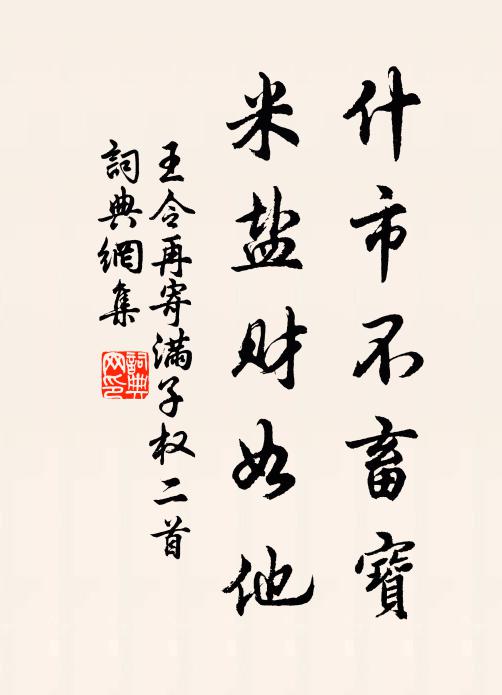 什市不畜寶
米盐财如他
王令再寄满子权二首
詞典網集
詞典網印